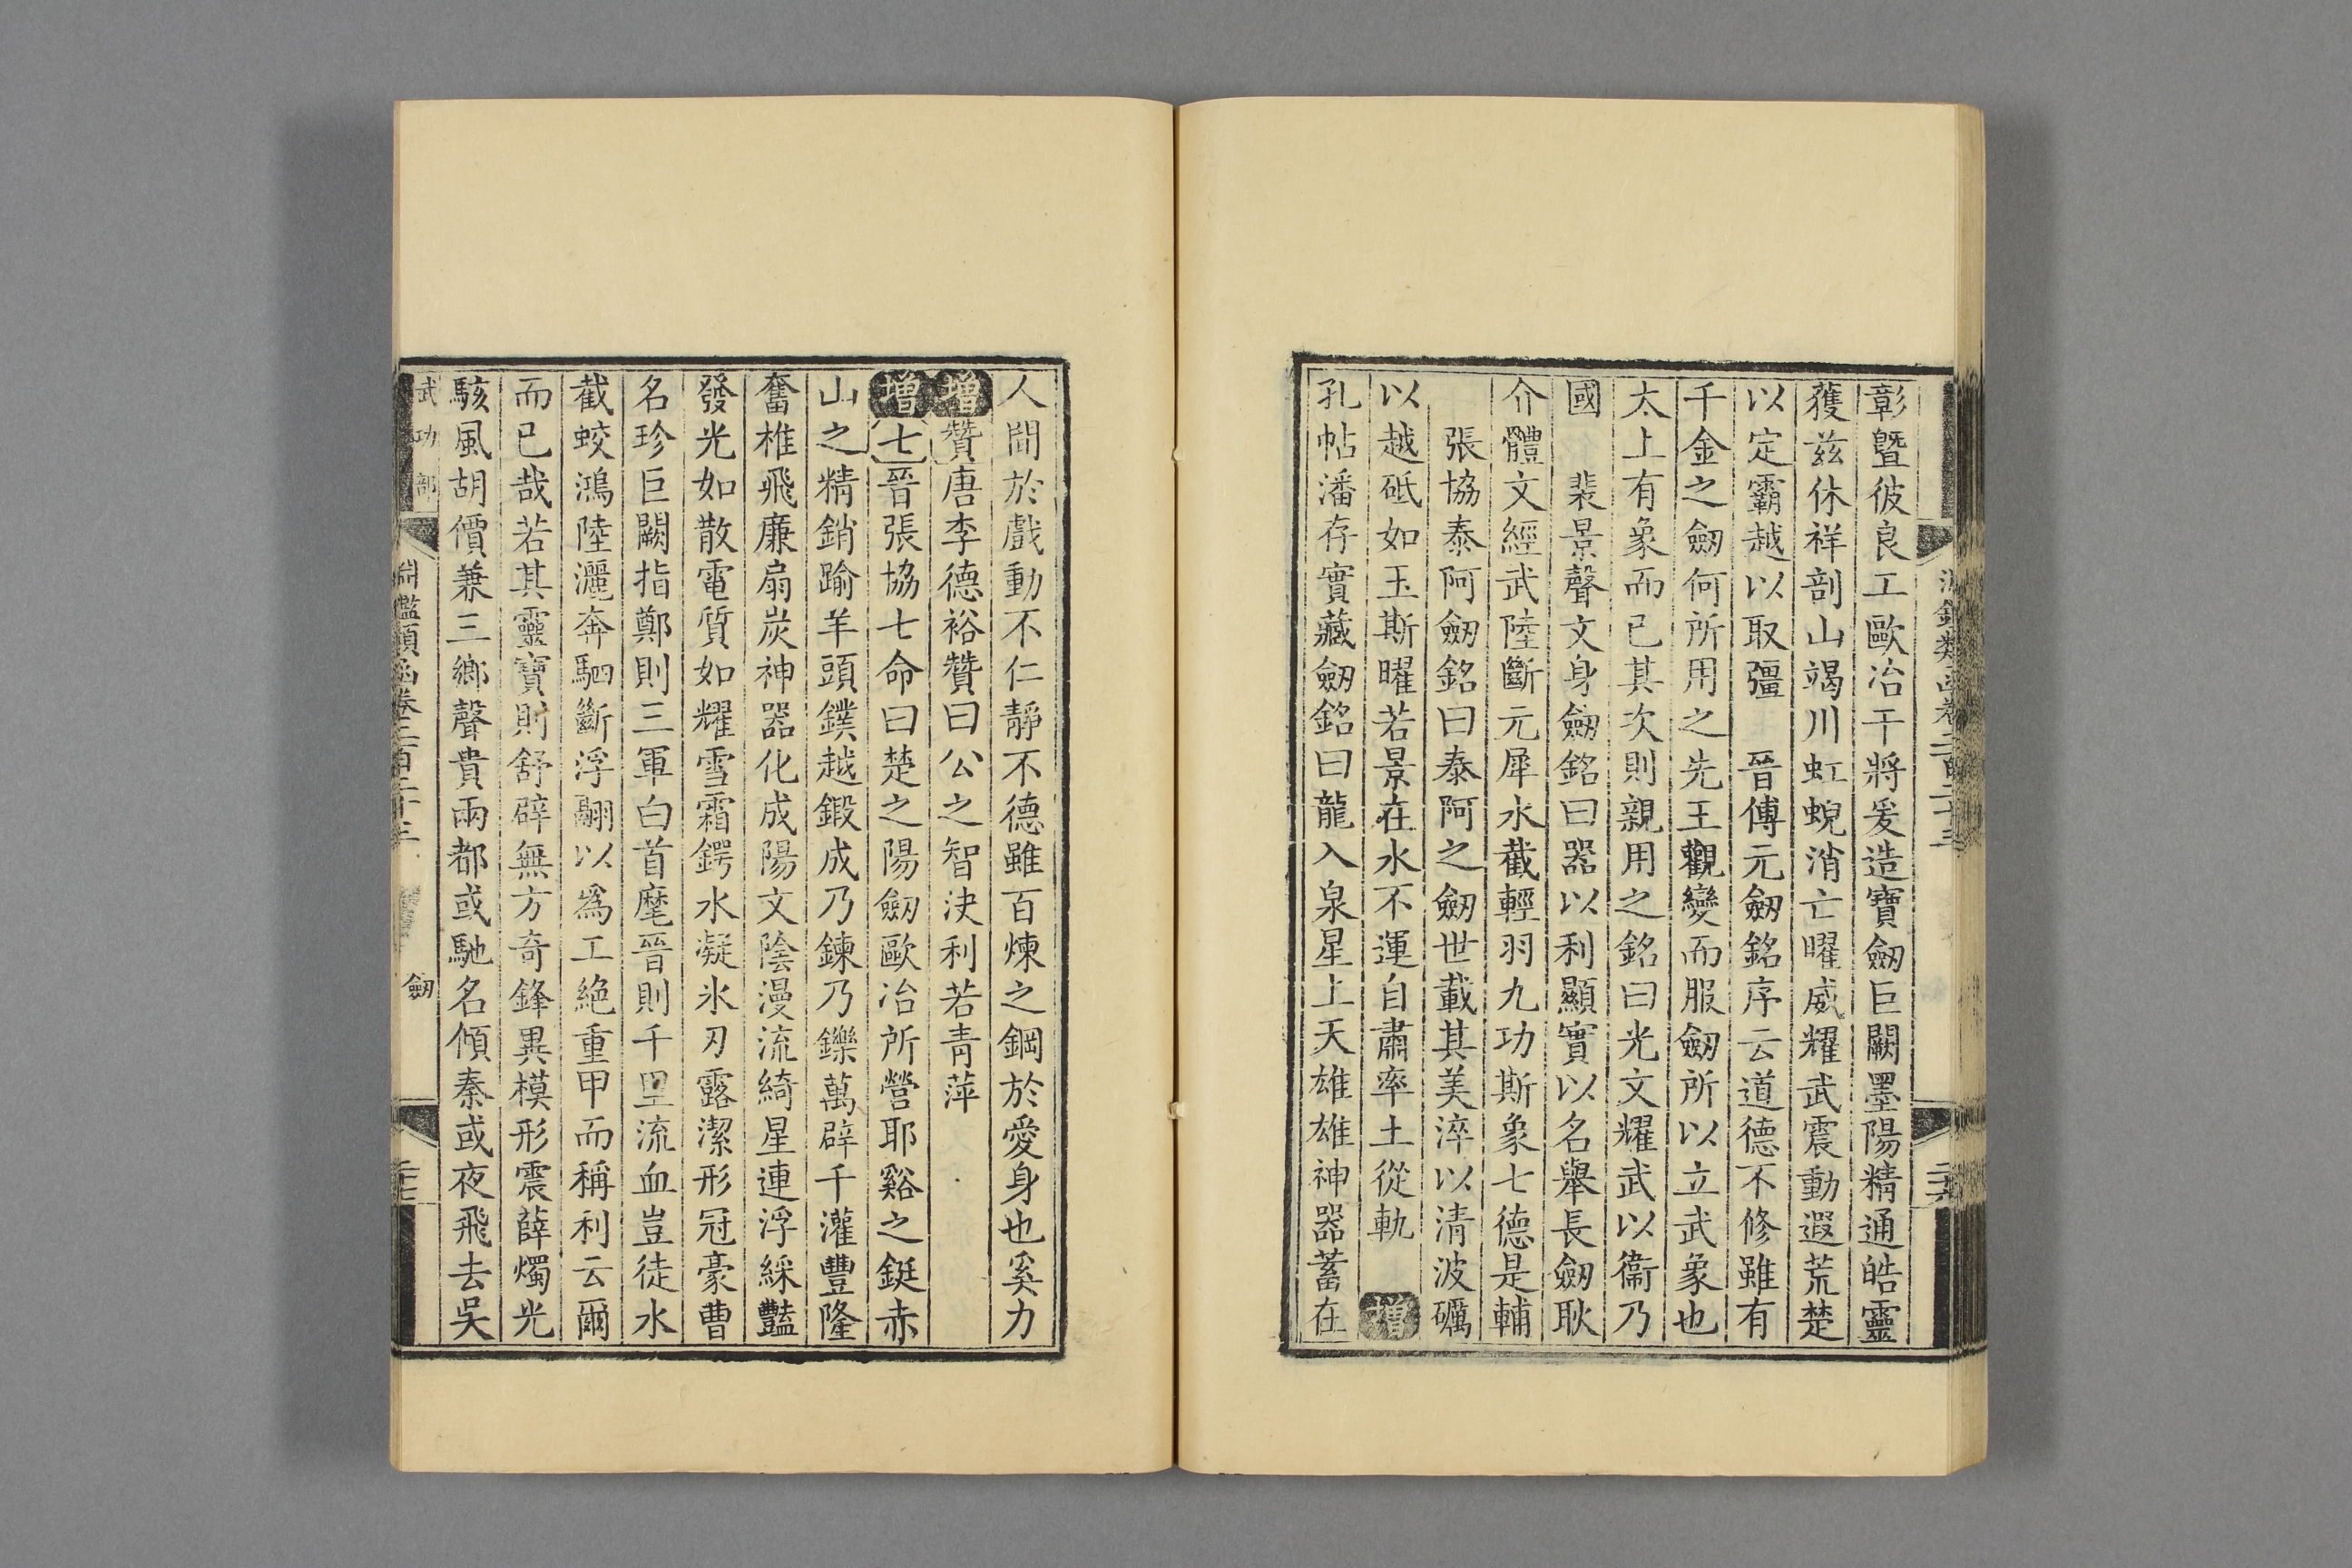 彰曁彼良工歐冶干將爰造寶劒巨闕墨陽精通皓靈
獲兹休祥剖山竭川虹蜺消亡曜威耀武震動遐荒楚
以定霸越以取彊　晉傅元劒銘序云道德不修雖有
千金之劒何所用之先王觀變而服劒所以立武象也
太上有象而已其次則親用之銘曰光文耀武以衞乃
國　裴景聲文身劒銘曰器以利顯實以名舉長劒耿
介體文經武陸斷元犀水截輕羽九功斯象七德是輔
張協泰阿劒銘曰泰阿之劒世載其美淬以清波礪
以越砥如玉斯曜若景在水不運自肅率土從軌　增
孔帖潘存實藏劒銘曰龍入泉星上天雄雄神器蓄在
人間於戲動不仁靜不德雖百煉之鋼於愛身也奚力
增贊唐李德裕贊曰公之智決利若青萍
增七晉張協七命曰楚之陽劒歐冶所營耶谿之鋌赤
山之精銷踰羊頭鏷越鍛成乃鍊乃鑠萬辟千灌豐隆
奮椎飛廉扇炭神器化成陽文陰漫流綺星連浮綵豔
發光如散電質如耀雪霜鍔水凝氷刃露潔形冠豪曹
名珍巨闕指鄭則三軍白首麾晉則千里流血豈徒水
截蛟鴻陸灑奔駟斷浮翮以爲工絶重甲而稱利云爾
而已哉若其靈寶則舒辟無方奇鋒異模形震薛燭光
駭風胡價兼三鄉聲貴兩都或馳名傾秦或夜飛去吳
武功部
淵鑑類函卷二百二十三
劒
二十七